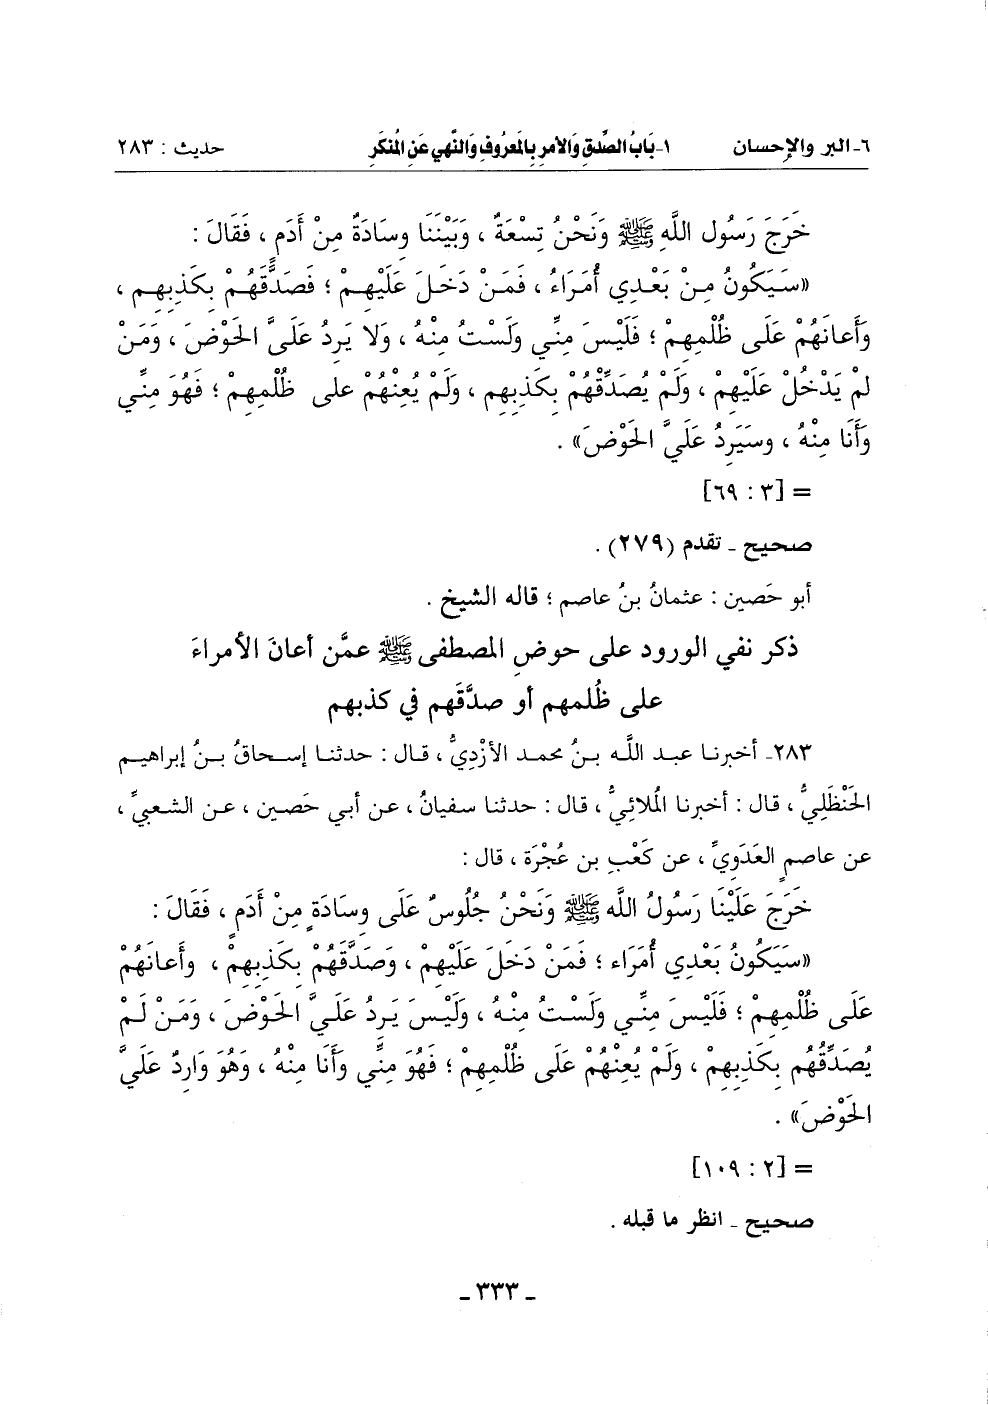 ٦ـ البر والإحسان ١ـ بَابُ الصِّدقِ وَالأمرِ بِالمَعرُوفِ وَالنَّهيِ عَنِ المُنكَرِ حديث : ٢٨٣
خَرَجَ رَسُول اللَّهِ ﷺ وَنَحْنُ تِسْعَةٌ ، وَبَيْنَنَا وِسَادَةٌ مِنْ أَدَمٍ ، فَقَالَ :
«سَيَكُونُ مِنْ بَعْدِي أُمَرَاءُ ، فَمَنْ دَخَلَ عَلَيْهِمْ ؛ فَصَدَّقَهُمْ بِكَذِبِهِم ،
وَأَعانَهُمْ عَلَى ظُلْمِهِمْ ؛ فَلَيْسَ مِنِّي ولَسْتُ مِنْهُ ، وَلا يَرِدُ عَلَيَّ الحَوْضَ ، وَمَنْ
لمْ يَدْخُلْ عَلَيْهِمْ ، وَلَمْ يُصَدِّقْهُمْ بِكَذِبِهِم ، وَلَمْ يُعِنْهُمْ على ظُلْمِهِمْ ؛ فَهُوَ مِنِّي
وَأَنَا مِنْهُ ، وسَيَرِدُ عَلَيَّ الحَوْضَ» .
= [٣ : ٦٩]
صحيح ـ تقدم (٢٧٩) .
أبو حَصين : عثمانُ بنُ عاصم ؛ قاله الشيخ .
ذكر نفي الورود على حوضِ المصطفى ﷺ عمَّن أعانَ الأمراءَ
على ظُلمهم أو صدَّقَهم في كذبهم
٢٨٣ـ أخبرنا عبد اللَّه بنُ محمد الأزْدِيُّ ، قال : حدثنا إسحاقُ بنُ إبراهيم
الحَنْظَلِيُّ ، قال : أخبرنا المُلائِيُّ ، قال : حدثنا سفيانُ ، عن أبي حَصِين ، عن الشعبيِّ ،
عن عاصمٍ العَدَوِيِّ ، عن كَعْبِ بن عُجْرَة ، قال :
خَرَجَ عَلَيْنَا رَسُولُ اللَّه ﷺ وَنَحْنُ جُلُوسٌ عَلَى وِسَادَةٍ مِنْ أَدَمٍ ، فَقَالَ :
«سَيَكُونُ بَعْدِي أُمَرَاء ؛ فَمَنْ دَخَلَ عَلَيْهِمْ ، وَصَدَّقَهُمْ بِكَذِبِهِمْ ، وأَعانَهُمْ
عَلَى ظُلْمِهِمْ ؛ فَلَيْسَ مِنِّي ولَسْتُ مِنْهُ ، ولَيْسَ يَرِدُ عَلَيَّ الحَوْضَ ، وَمَنْ لَمْ
يُصَدِّقْهُم بِكَذِبِهِمْ ، ولَمْ يُعِنْهُمْ عَلَى ظُلْمِهِمْ ؛ فَهُوَ مِنِّي وَأَنَا مِنْهُ ، وَهُوَ وَارِدٌ عَلَيَّ
الحَوْضَ» .
= [٢ : ١٠٩]
صحيح ـ انظر ما قبله .
ـ ٣٣٣ ـ